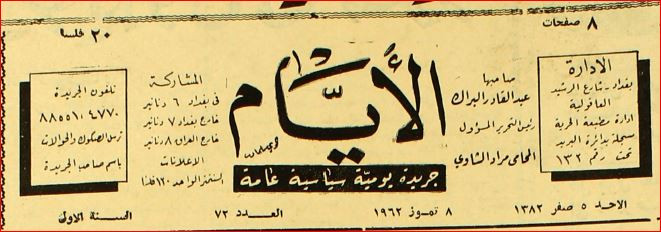 ٨ صفحات
٢٠ فلسا
الادارة
بغداد - شارع الرشيد
العاقولية
ادارة مطبعة الحرية
مسجلة بدائرة البريد
تحت رقم ١٣٢
صاحبها
عبد القادر البراك
رئيس التحرير المسؤول
المحامي مراد الشاوي
الأيام
جريدة يومية سياسية عامة
المشاركة
في بغداد ٦ دنانير
خارج بغداد ٧ دنانير
خارج العراق ٨ دنانير
الاعلانات
السنتمتر الواحد ١٢٠ فلسا
تلفون الجريدة
٨٨٥٥١٠٤٧٧٠
ترسل الصكوك والحوالات
باسم صاحب الجريدة
الاحد ٥ صفر ١٣٨٢
٨ تموز ١٩٦٢
العدد ٧٢
السنة الاولى